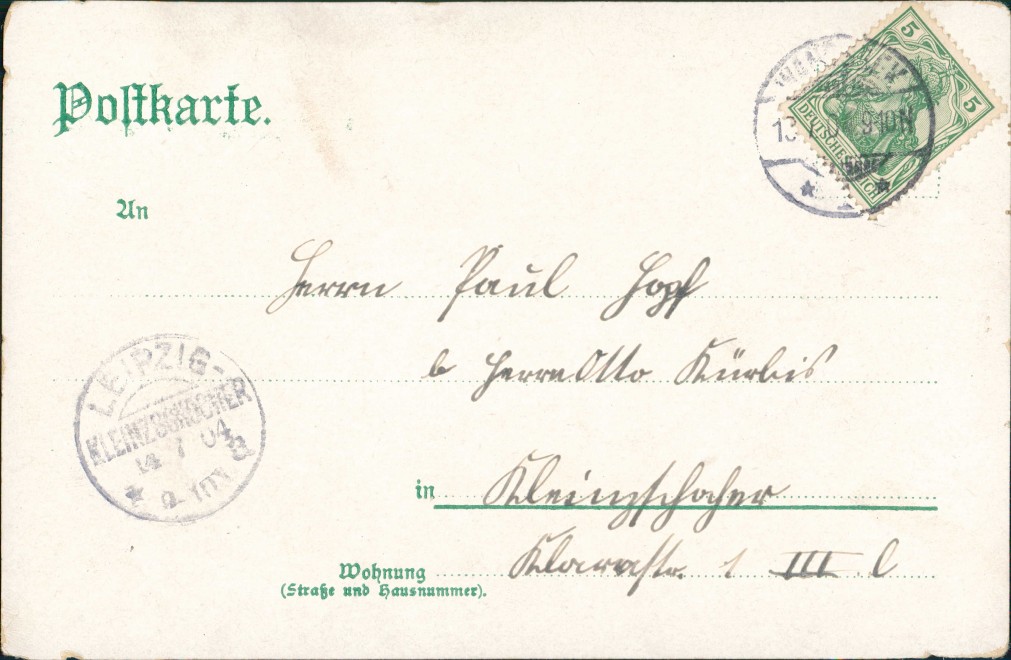 Postkarte.
5
5
DEUTSCHES REICH
9-10N
An
Herrn Paul Hopf
b Herrn Otto Kürbis
LEIPZIG-
KLEINZSCHOCHER
14 7 04
9-10N
in Kleinzschocher
Wohnung
(Straße und Hausnummer).
Klarastr. 1 III l